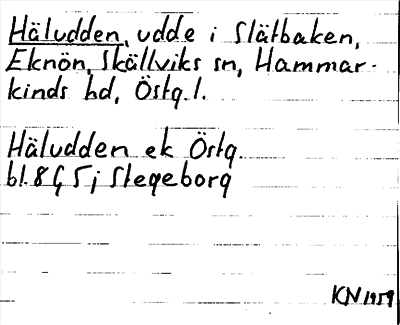 Häludden, udde i Slätbaken,
Eknön, Skällviks sn, Hammar-
kinds hd, Östg. l.
Häludden ek Östg.
bl. 8 G 5 j Stegeborg
KN 1959